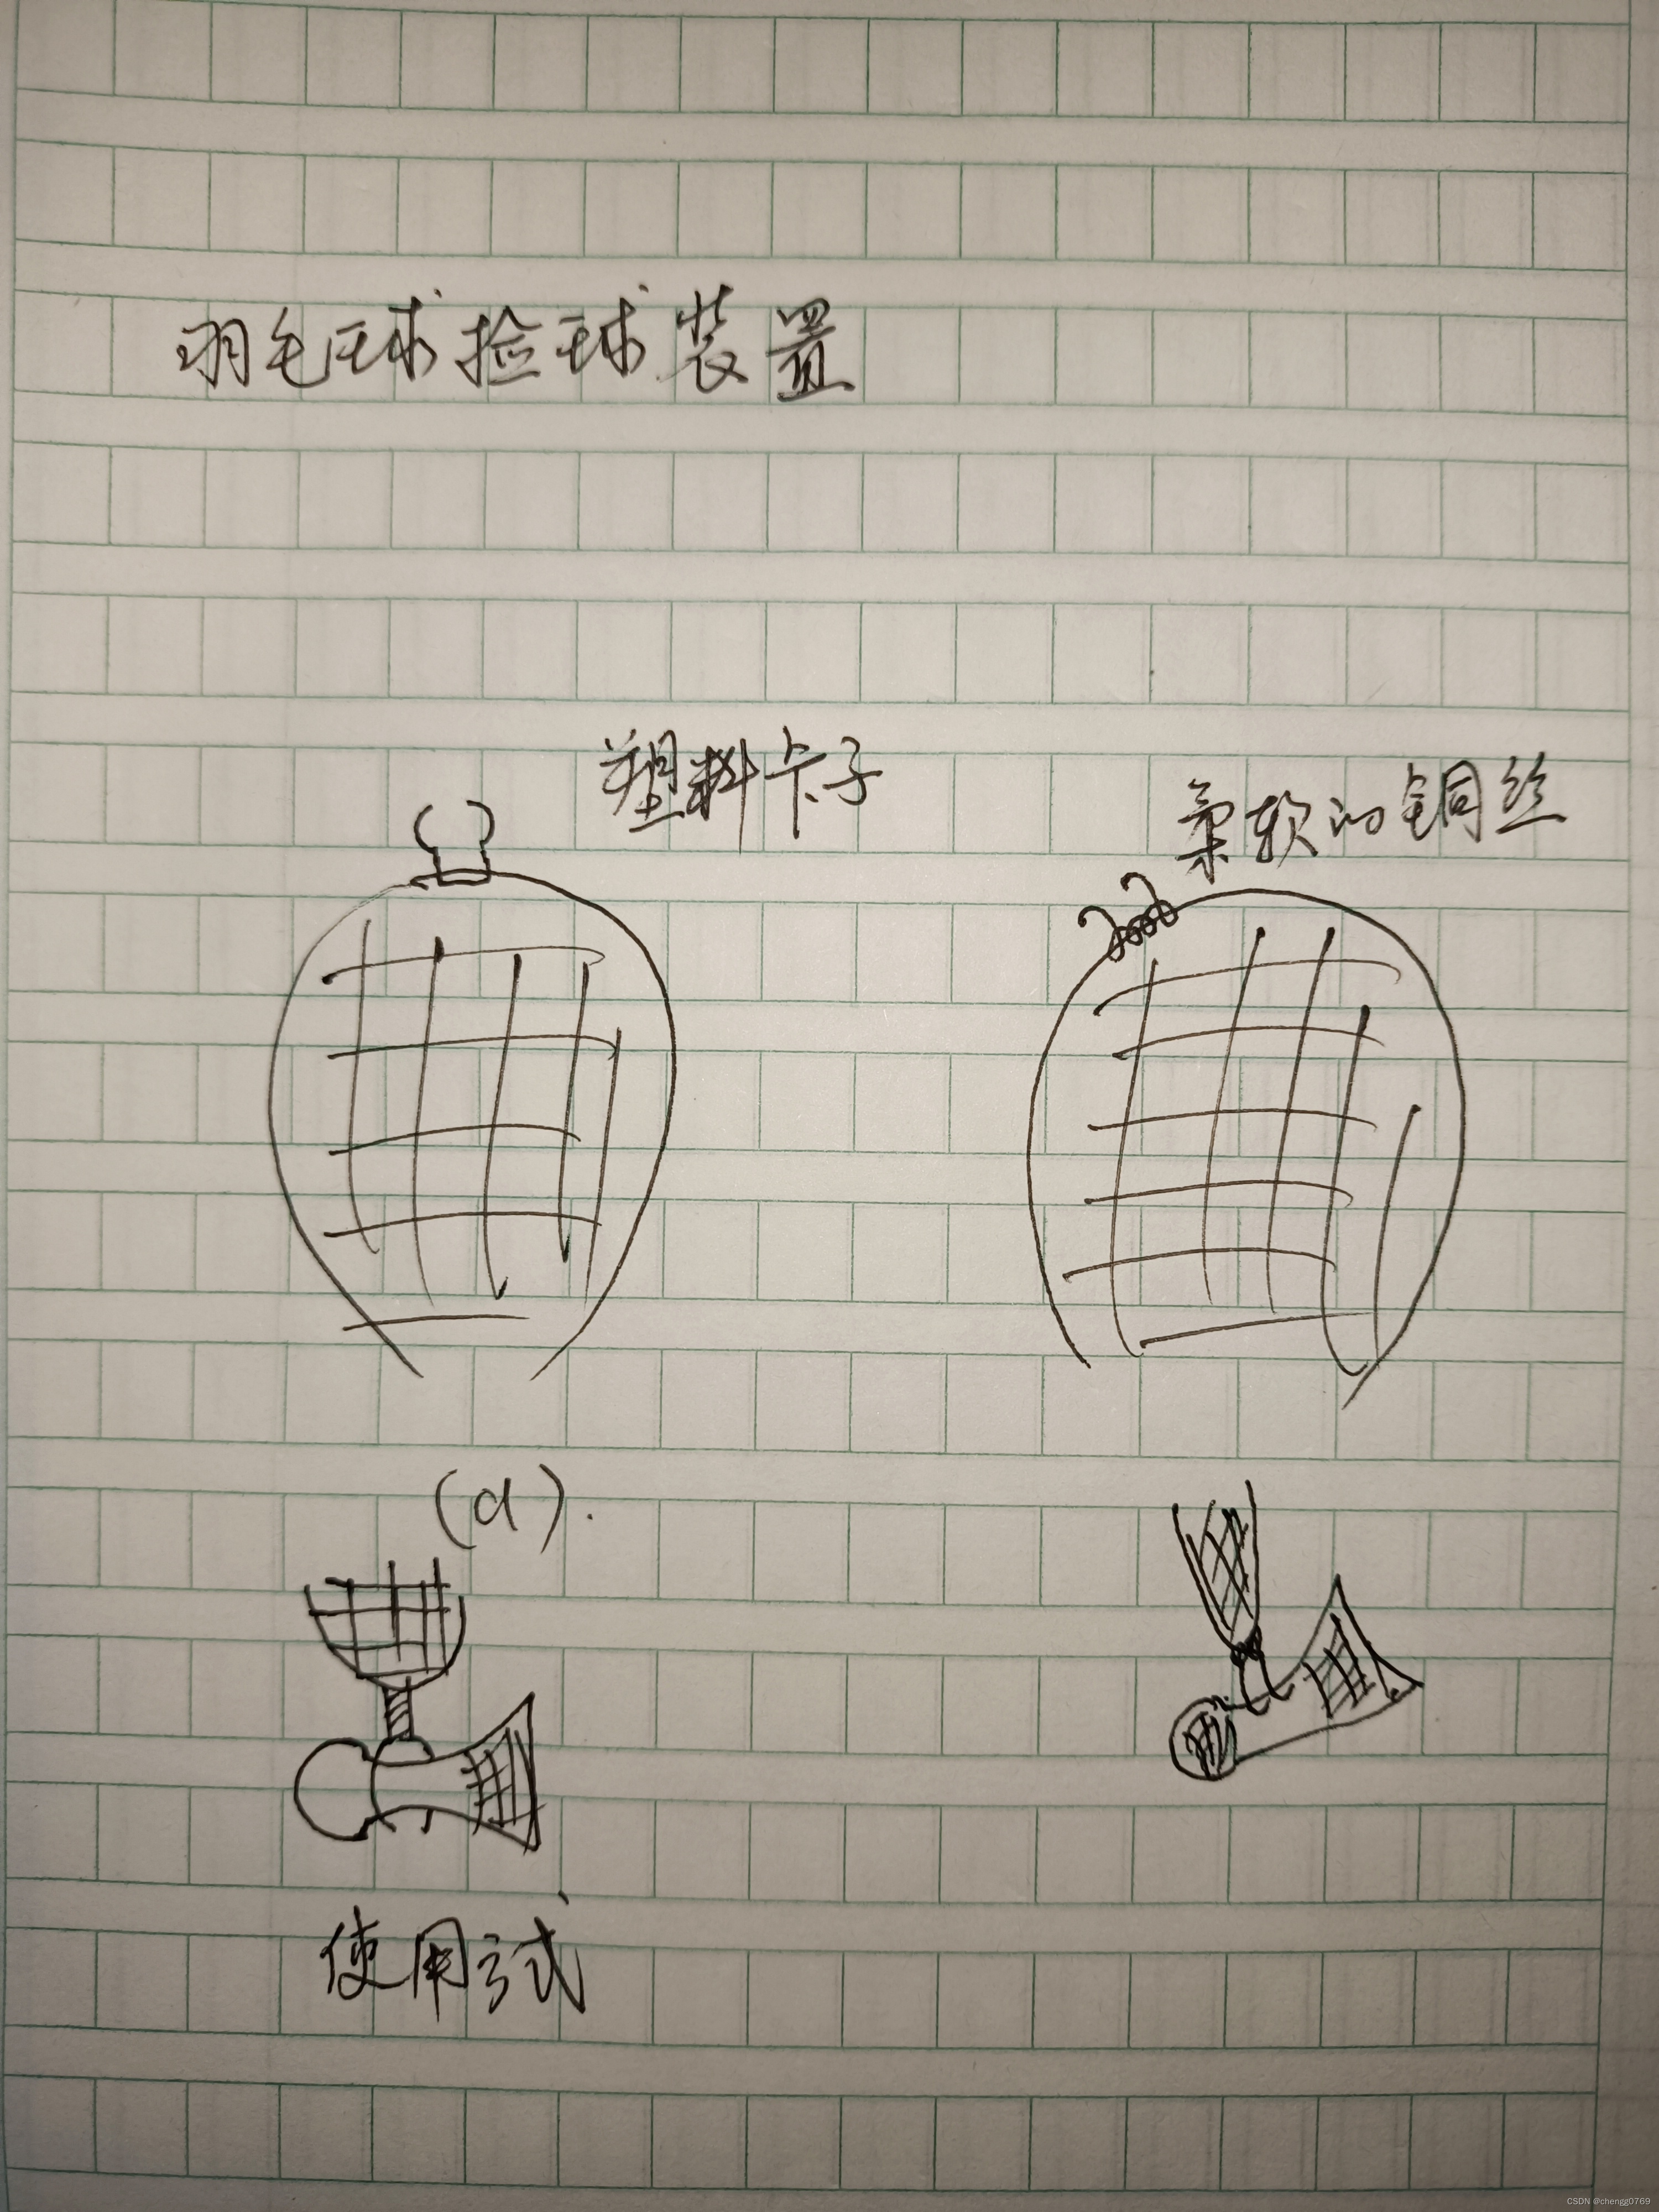 羽毛球捡球装置
塑料卡子
柔软的铜丝
(a).
使用方式
CSDN @chengg0769